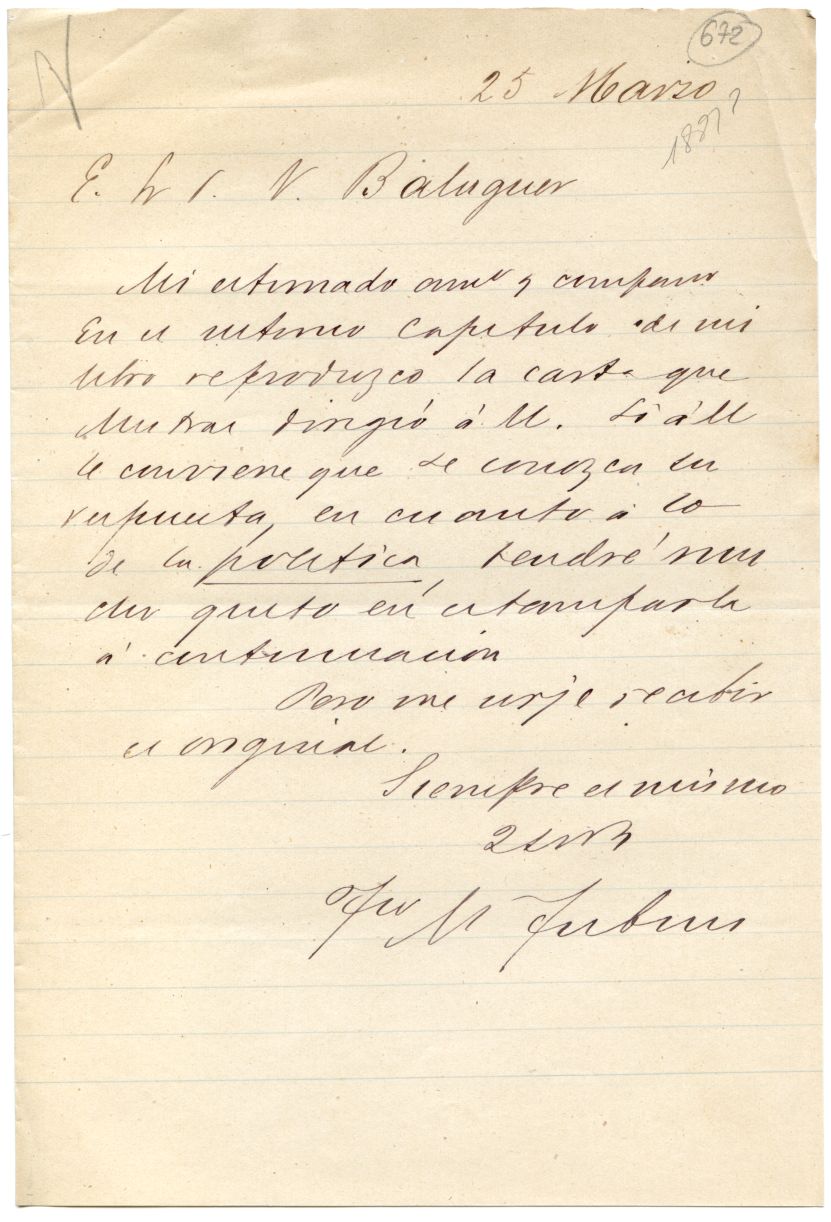 672
25 Marzo
188??
E. Sr D. V. Balaguer
Mi estimado amº y compañero
En el último capítulo de mi
libro reproduzco la carta que
Mistral dirigió á V. Si á V
le conviene que se conozca su
respuesta, en cuanto á lo
de la política, tendré mu
cho gusto en estamparla
á continuación
Pero me urje recibir
el original.
Siempre el mismo
Frco M Tubino